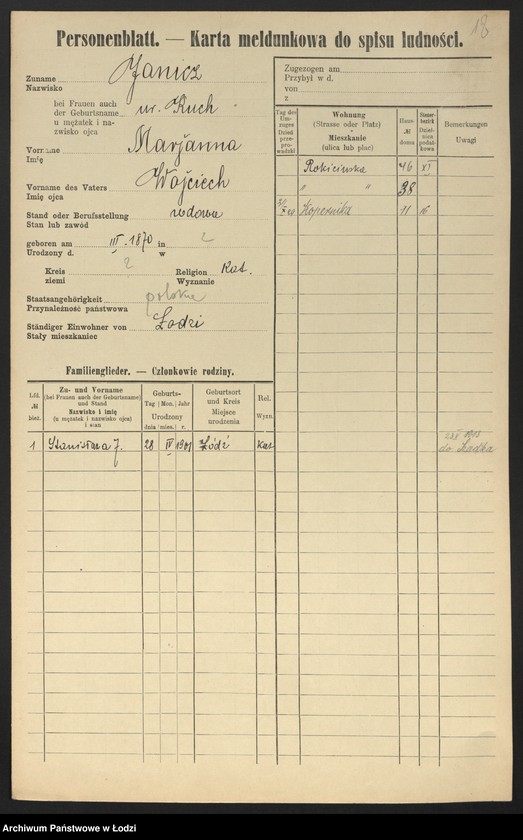 18
Personenblatt. — Karta meldunkowa do spisu ludności.
Zuname Janicz
Nazwisko
bei Frauen auch
der Geburtsname ur. Kuch
u mężatek i na-
zwisko ojca
Vorname Marjanna
Imię
Vorname des Vaters Wojciech
Imię ojca
Stand oder Berufsstellung wdowa
Stan lub zawód
geboren am III. 1870 in ?
Urodzony d. w
Kreis ? Religion Kat.
ziemi Wyznanie
Staatsangehörigkeit polska
Przynależność państwowa
Ständiger Einwohner von Łodzi
Stały mieszkaniec
Zugezogen am
Przybył w d.
von
z
Tag des Um-zuges Dzień prze-pro-wadzki
Wohnung (Strasse oder Platz) Mieszkanie (ulica lub plac)
Haus № domu
Steuer-bezirk Dziel-nica podat-kowa
Bemerkungen Uwagi
Rokicińska 46 XI
" " 38
Kopernika 11
Familienglieder. — Członkowie rodziny.
Lfd. № bież.
Zu- und Vorname (bei Frauen auch der Geburtsname) und Stand Nazwisko i imię (u mężatek i nazwisko ojca) i stan
Geburts- Tag (Mon.) Jahr Urodzony dnia (mies.) r.
Geburtsort und Kreis Miejsce urodzenia
Rel. Wyzn.
1 Stanisława J. 28 IV 1901 Łódź Kat
1915
do
Archiwum Państwowe w Łodzi